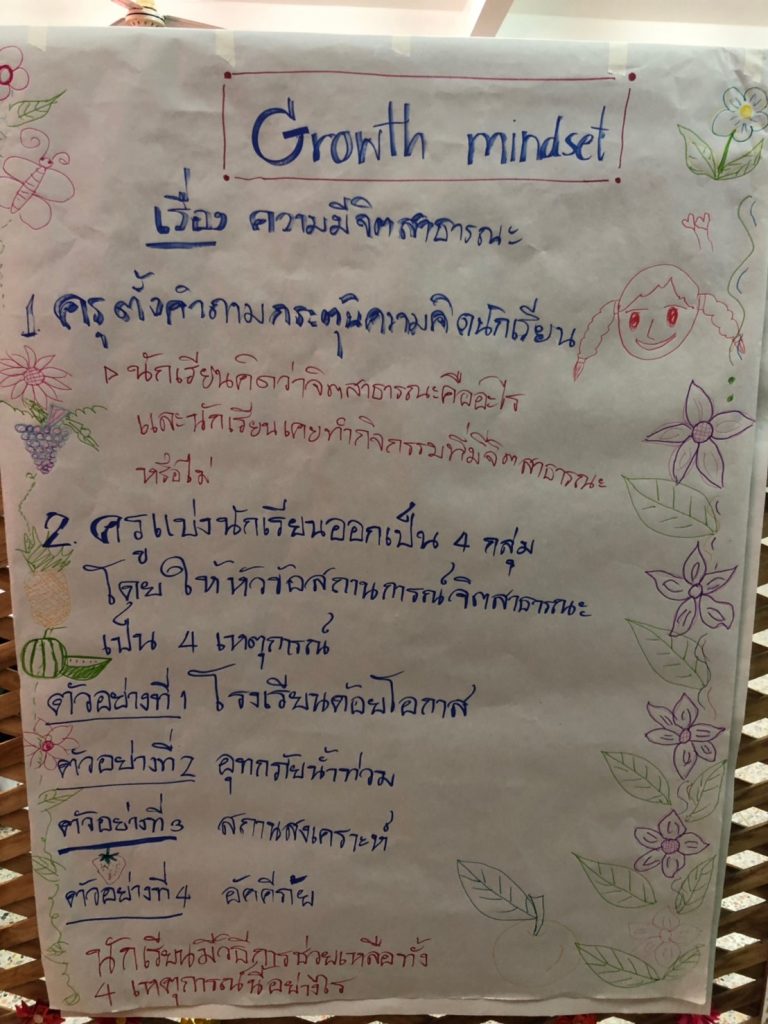 Growth mindset
เรื่อง ความมีจิตสาธารณะ
1. ครูตั้งคำถามกระตุ้นความคิดนักเรียน
นักเรียนคิดว่าจิตสาธารณะคืออะไร
และนักเรียนเคยทำกิจกรรมที่มีจิตสาธารณะ
หรือไม่
2. ครูแบ่งนักเรียนออกเป็น 4 กลุ่ม
โดยให้หัวข้อสถานการณ์จิตสาธารณะ
เป็น 4 เหตุการณ์
ตัวอย่างที่ 1 โรงเรียนด้อยโอกาส
ตัวอย่างที่ 2 อุทกภัยน้ำท่วม
ตัวอย่างที่ 3 สถานสงเคราะห์
ตัวอย่างที่ 4 อัคคีภัย
นักเรียนมีวิธีการช่วยเหลือทั้ง
4 เหตุการณ์นี้อย่างไร